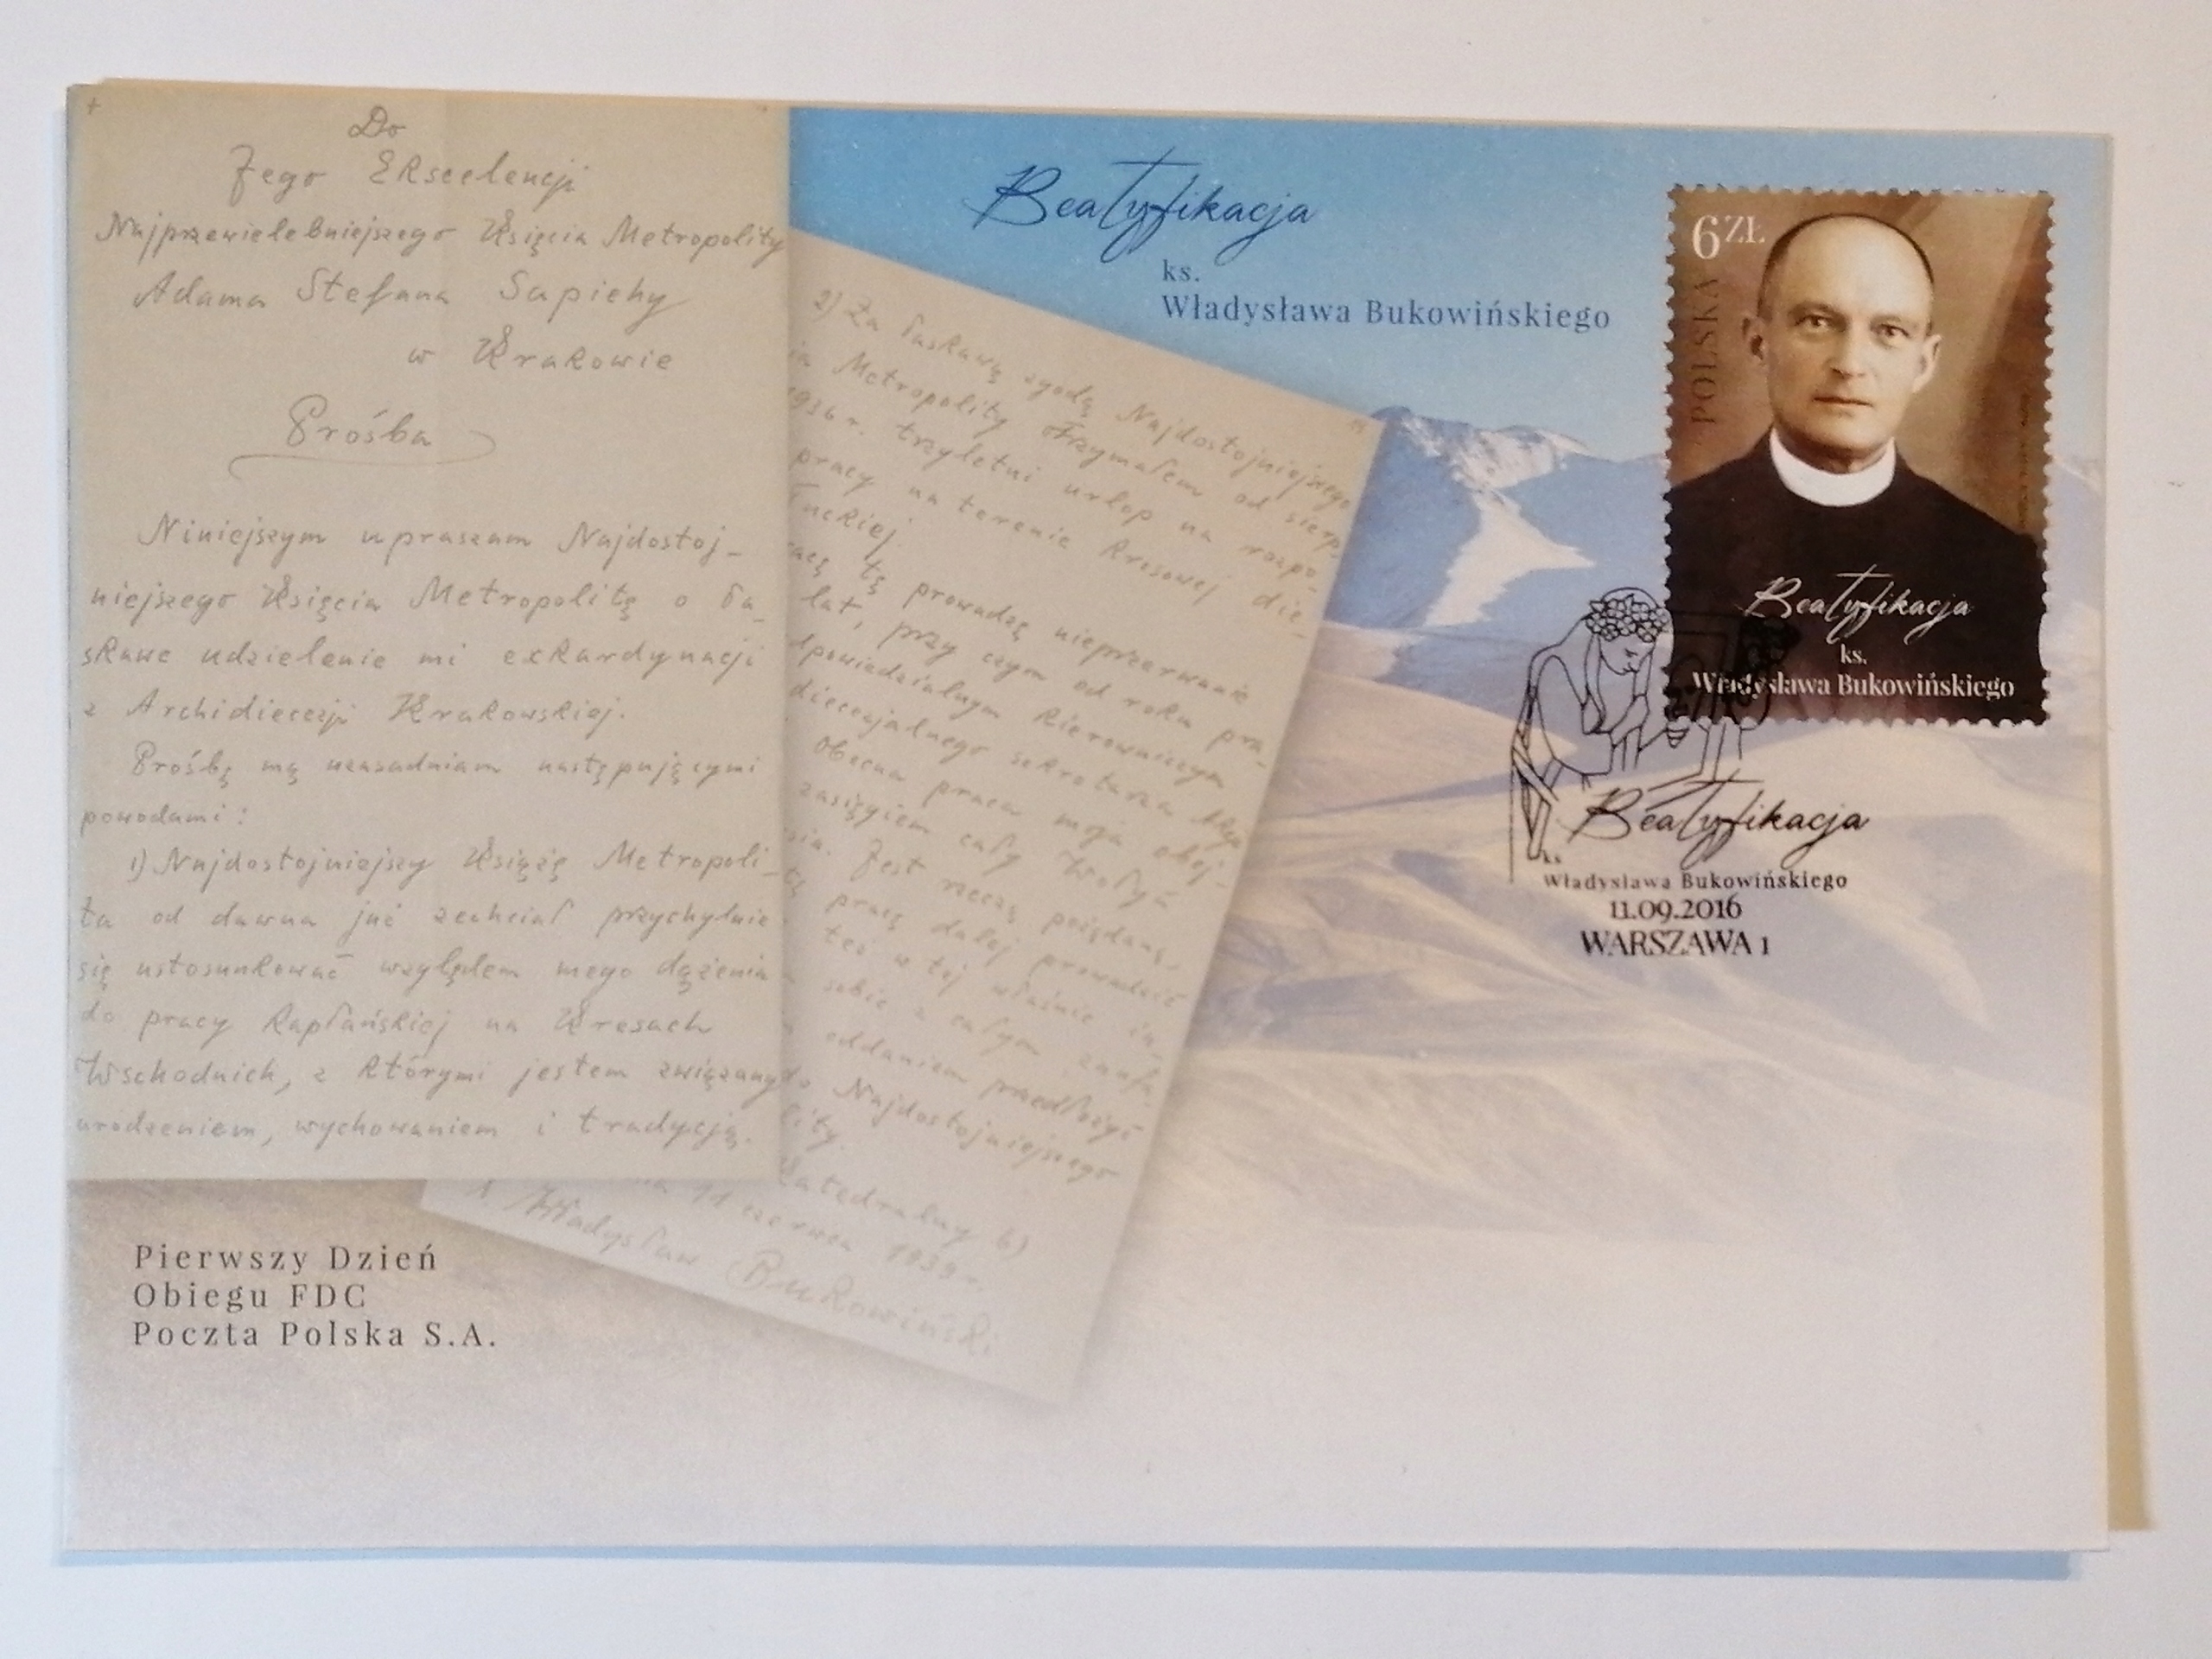 Do
Jego Ekscelencji
Najprzewielebniejszego Księcia Metropolity
Adama Stefana Sapiehy
w Krakowie
Prośba
Niniejszym upraszam Najdostoj-
niejszego Księcia Metropolitę o ła-
skawe udzielenie mi exkardynacji
z Archidiecezji Krakowskiej.
Prośbę mą uzasadniam następującymi
powodami:
1) Najdostojniejszy Książę Metropoli-
ta od dawna już zechciał przychylnie
się ustosunkować względem mego dążenia
do pracy kapłańskiej na Kresach
Wschodnich, z którymi jestem związany
urodzeniem, wychowaniem i tradycją.
2) Za łaskawą zgodą Najdostojniejszego
Metropolity otrzymałem od sierp.
1936 r. trzyletni urlop na rozpo-
pracy na terenie kresowej die-
nckiej.
tę prowadzę nieprzerwanie
lat, przy czym od roku pra-
dpowiedzialnym kierowniczym
diecezjalnego sekretarza
Obecna praca moja obej-
zasięgiem cały Wołyń
Jest rzeczą pożądaną,
pracę dalej prowadzić
też w tej właśnie in-
sobie z całym zaufa-
oddaniem przedłożyć
do Najdostojniejszego
lity.
Katedralny 6)
11 czerwca 1939 r.
X. Władysław Bukowiński
Beatyfikacja
ks.
Władysława Bukowińskiego
6 ZŁ
POLSKA
Beatyfikacja
ks.
Władysława Bukowińskiego
Beatyfikacja
ks.
Władysława Bukowińskiego
11.09.2016
WARSZAWA 1
Pierwszy Dzień
Obiegu FDC
Poczta Polska S.A.